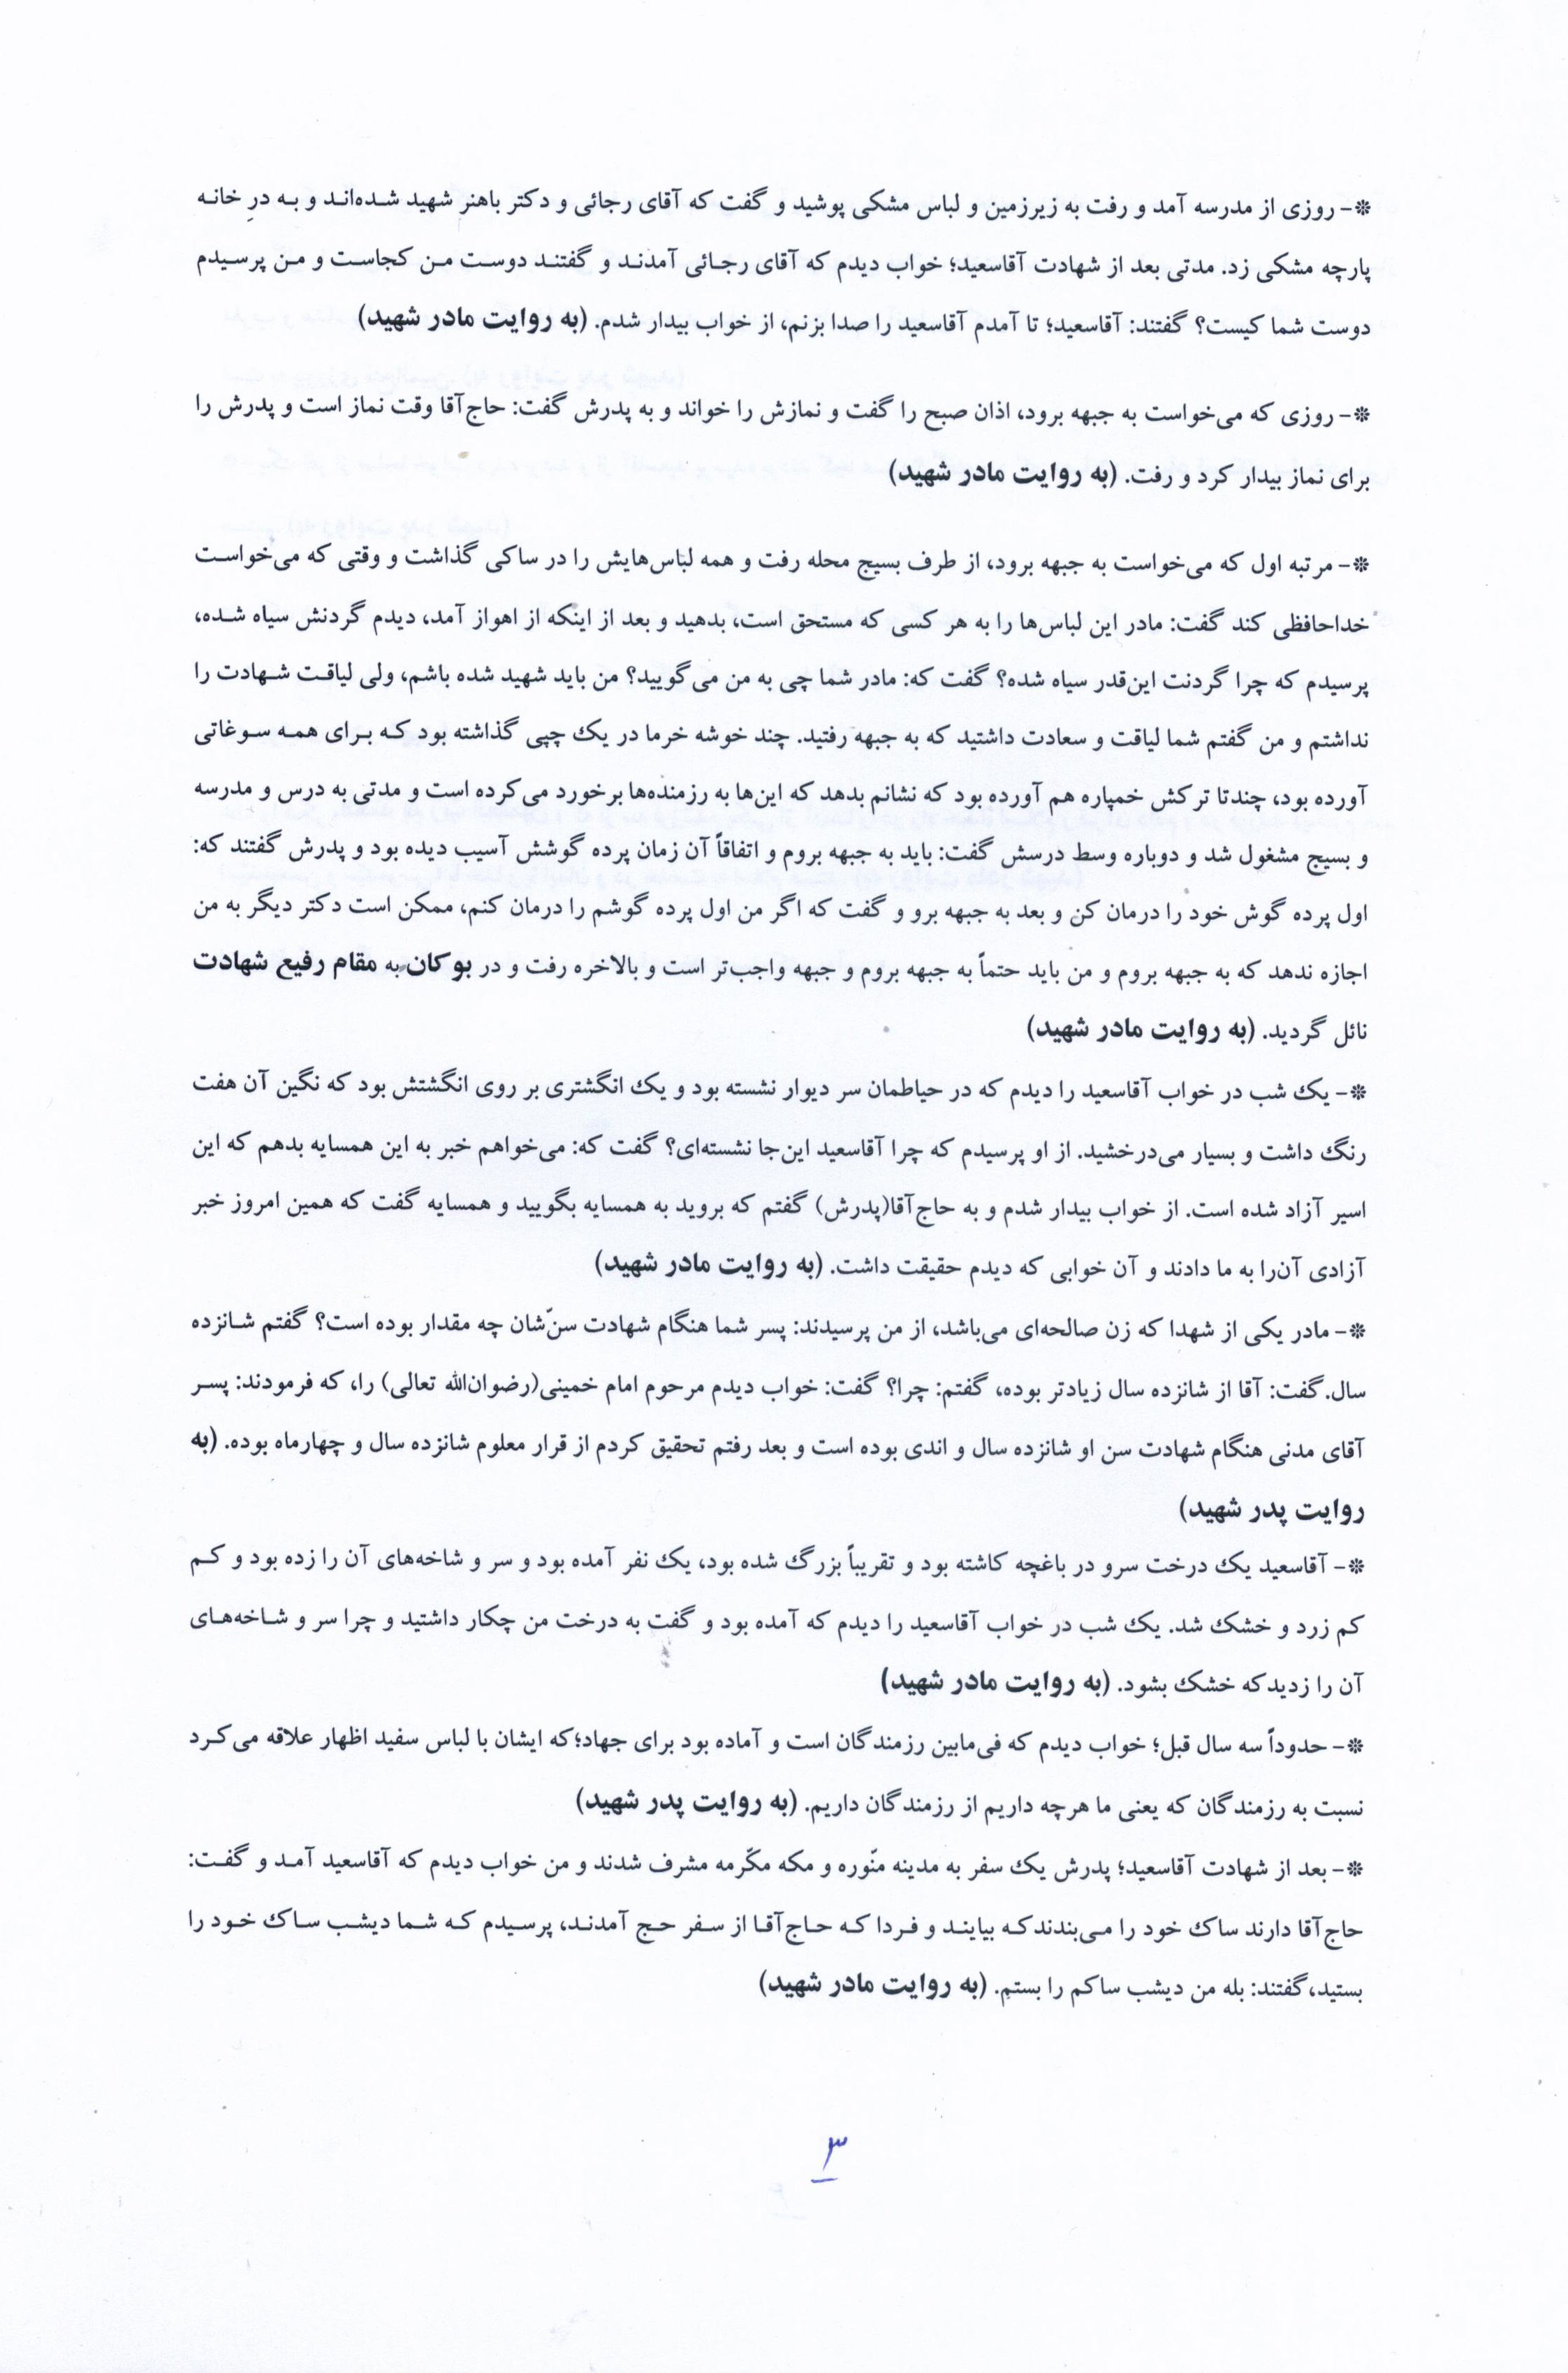 ❊- روزی از مدرسه آمد و رفت به زیرزمین و لباس مشکی پوشید و گفت که آقای رجائی و دکتر باهنر شهید شده‌اند و به درِ خانه
پارچه مشکی زد. مدتی بعد از شهادت آقاسعید؛ خواب دیدم که آقای رجائی آمدند و گفتند دوست من کجاست و من پرسیدم
دوست شما کیست؟ گفتند: آقاسعید؛ تا آمدم آقاسعید را صدا بزنم، از خواب بیدار شدم. (به روایت مادر شهید)
❊- روزی که می‌خواست به جبهه برود، اذان صبح را گفت و نمازش را خواند و به پدرش گفت: حاج‌آقا وقت نماز است و پدرش را
برای نماز بیدار کرد و رفت. (به روایت مادر شهید)
❊- مرتبه اول که می‌خواست به جبهه برود، از طرف بسیج محله رفت و همه لباس‌هایش را در ساکی گذاشت و وقتی که می‌خواست
خداحافظی کند گفت: مادر این لباس‌ها را به هر کسی که مستحق است، بدهید و بعد از اینکه از اهواز آمد، دیدم گردنش سیاه شده،
پرسیدم که چرا گردنت این‌قدر سیاه شده؟ گفت که: مادر شما چی به من می‌گویید؟ من باید شهید شده باشم، ولی لیاقت شهادت را
نداشتم و من گفتم شما لیاقت و سعادت داشتید که به جبهه رفتید. چند خوشه خرما در یک چپی گذاشته بود که برای همه سوغاتی
آورده بود، چندتا ترکش خمپاره هم آورده بود که نشانم بدهد که این‌ها به رزمنده‌ها برخورد می‌کرده است و مدتی به درس و مدرسه
و بسیج مشغول شد و دوباره وسط درسش گفت: باید به جبهه بروم و اتفاقاً آن زمان پرده گوشش آسیب دیده بود و پدرش گفتند که:
اول پرده گوش خود را درمان کن و بعد به جبهه برو و گفت که اگر من اول پرده گوشم را درمان کنم، ممکن است دکتر دیگر به من
اجازه ندهد که به جبهه بروم و من باید حتماً به جبهه بروم و جبهه واجب‌تر است و بالاخره رفت و در بوکان به مقام رفیع شهادت
نائل گردید. (به روایت مادر شهید)
❊- یک شب در خواب آقاسعید را دیدم که در حیاطمان سر دیوار نشسته بود و یک انگشتری بر روی انگشتش بود که نگین آن هفت
رنگ داشت و بسیار می‌درخشید. از او پرسیدم که چرا آقاسعید این‌جا نشسته‌ای؟ گفت که: می‌خواهم خبر به این همسایه بدهم که این
اسیر آزاد شده است. از خواب بیدار شدم و به حاج‌آقا(پدرش) گفتم که بروید به همسایه بگویید و همسایه گفت که همین امروز خبر
آزادی آن‌را به ما دادند و آن خوابی که دیدم حقیقت داشت. (به روایت مادر شهید)
❊- مادر یکی از شهدا که زن صالحه‌ای می‌باشد، از من پرسیدند: پسر شما هنگام شهادت سنّ‌شان چه مقدار بوده است؟ گفتم شانزده
سال.گفت: آقا از شانزده سال زیادتر بوده، گفتم: چرا؟ گفت: خواب دیدم مرحوم امام خمینی(رضوان‌الله تعالی) را، که فرمودند: پسر
آقای مدنی هنگام شهادت سن او شانزده سال و اندی بوده است و بعد رفتم تحقیق کردم از قرار معلوم شانزده سال و چهارماه بوده. (به
روایت پدر شهید)
❊- آقاسعید یک درخت سرو در باغچه کاشته بود و تقریباً بزرگ شده بود، یک نفر آمده بود و سر و شاخه‌های آن را زده بود و کم
کم زرد و خشک شد. یک شب در خواب آقاسعید را دیدم که آمده بود و گفت به درخت من چکار داشتید و چرا سر و شاخه‌های
آن را زدیدکه خشک بشود. (به روایت مادر شهید)
❊- حدوداً سه سال قبل؛ خواب دیدم که فی‌مابین رزمندگان است و آماده بود برای جهاد؛که ایشان با لباس سفید اظهار علاقه می‌کرد
نسبت به رزمندگان که یعنی ما هرچه داریم از رزمندگان داریم. (به روایت پدر شهید)
❊- بعد از شهادت آقاسعید؛ پدرش یک سفر به مدینه منّوره و مکه مکّرمه مشرف شدند و من خواب دیدم که آقاسعید آمد و گفت:
حاج‌آقا دارند ساک خود را می‌بندندکه بیایند و فردا که حاج‌آقا از سفر حج آمدند، پرسیدم که شما دیشب ساک خود را
بستید،گفتند: بله من دیشب ساکم را بستم. (به روایت مادر شهید)
۳